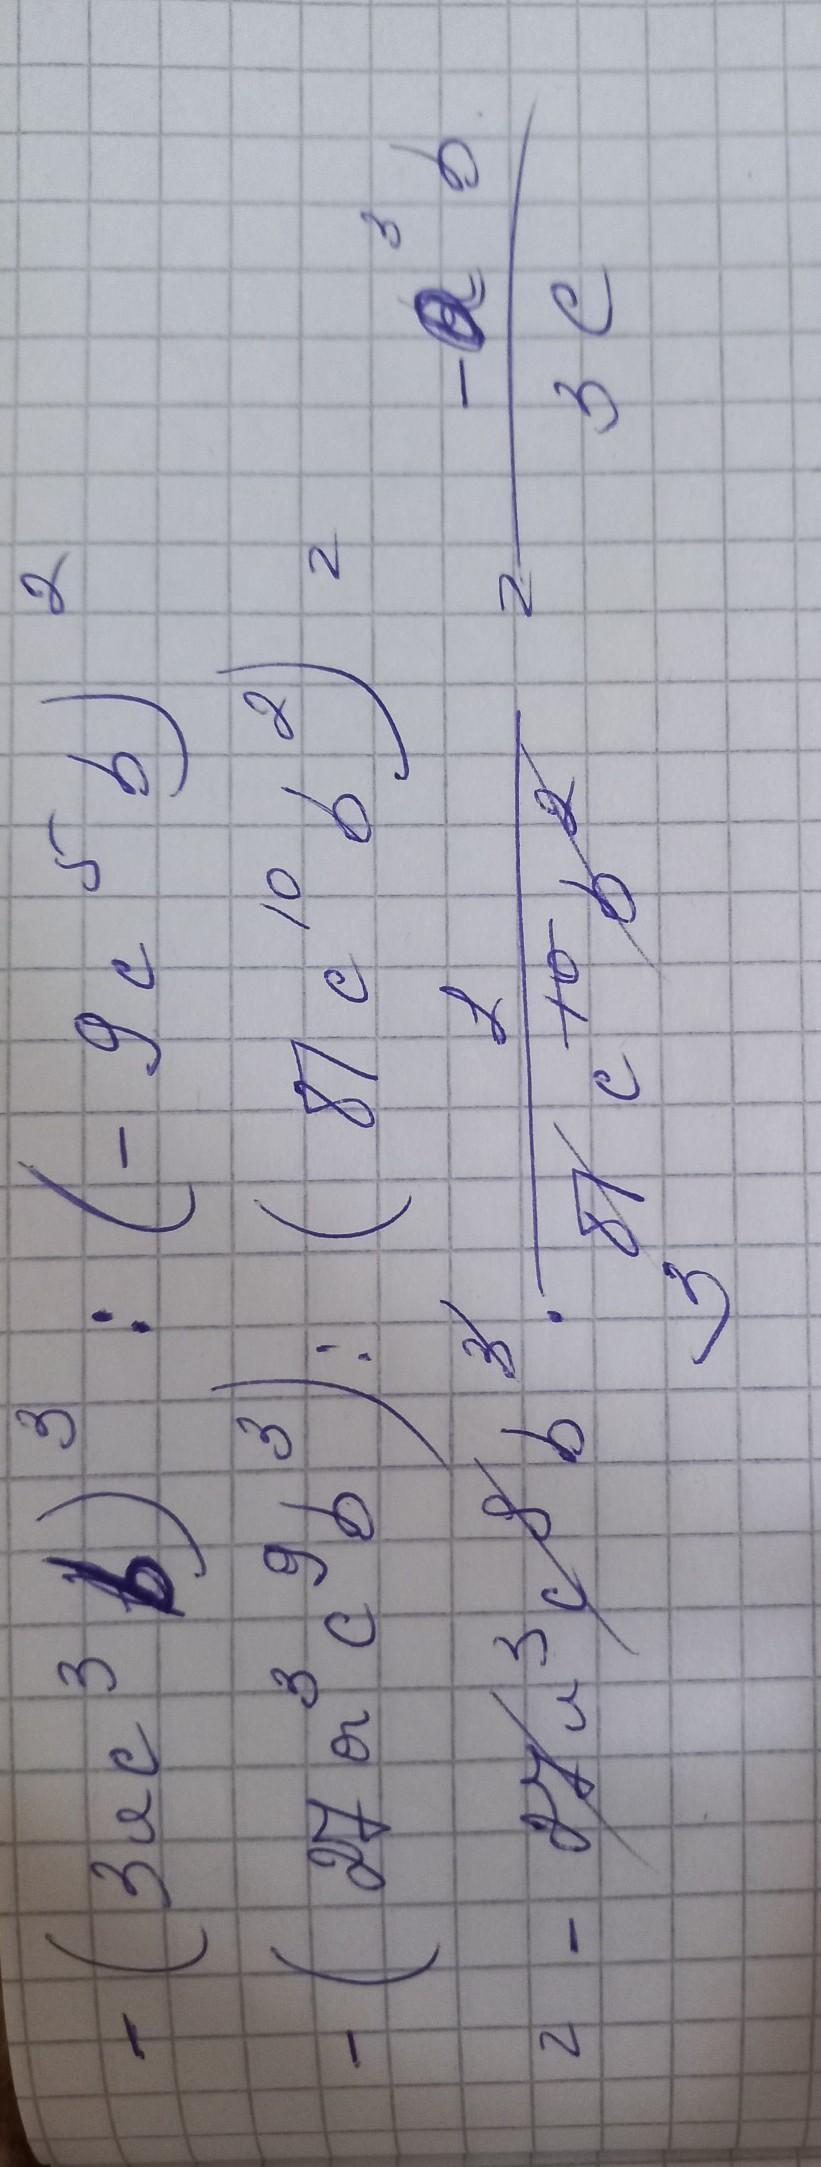 -(3ac³b)³ : (-9c⁵b)²
-(27a³c⁹b³) : (81c¹⁰b²) =
= -27a³c⁹b³ · 1/(81c¹⁰b²) = -a³b/(3c)
3